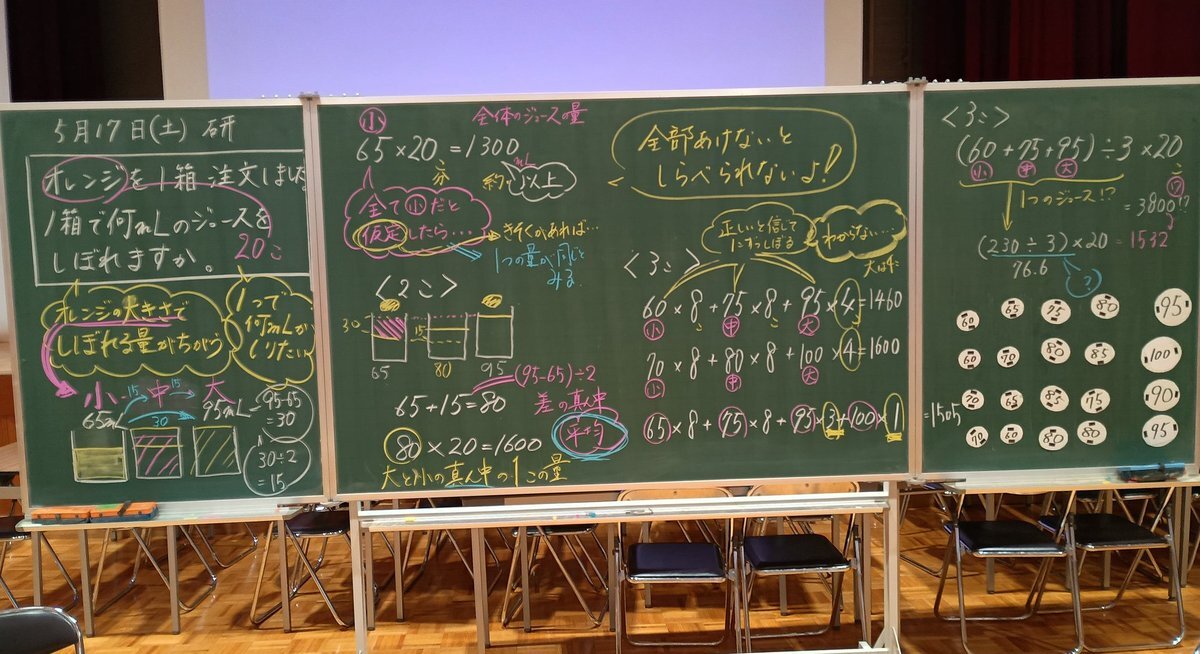 5月17日(土) 研
オレンジを1箱注文しました
1箱で何mLのジュースを
しぼれますか。
20こ
オレンジの大きさで
しぼれる量がちがう
1つで
何mLか
しりたい
小 15 中 15 大
65mL 30 95mL
95-65
=30
30÷2
=15
小 全体のジュースの量
65×20=1300
mL
約 以上
全て小だと
仮定したら…
きそくがあれば…
1つの量が同じと
みる
<2こ>
30
15
65 80 95
(95-65)÷2
65+15=80
差の真ん中
平均
80×20=1600
大と小の真ん中の1この量
全部あけないと
しらべられないよ!
正しいと信じて
わからない…
大は4こ
<3こ>
60×8+75×8+95×4=1460
小 中 大
70×8+80×8+100×4=1600
小 中 大
65×8+75×8+95×3+100×1=1505
<3こ>
(60+75+95)÷3×20
小 中 大
こ
1つのジュース!?
=3800!?
(230÷3)×20=1532
76.6
?
60 65 95 80 95
60 70 80 85 100
70 65 85 75 90
70 60 80 80 95